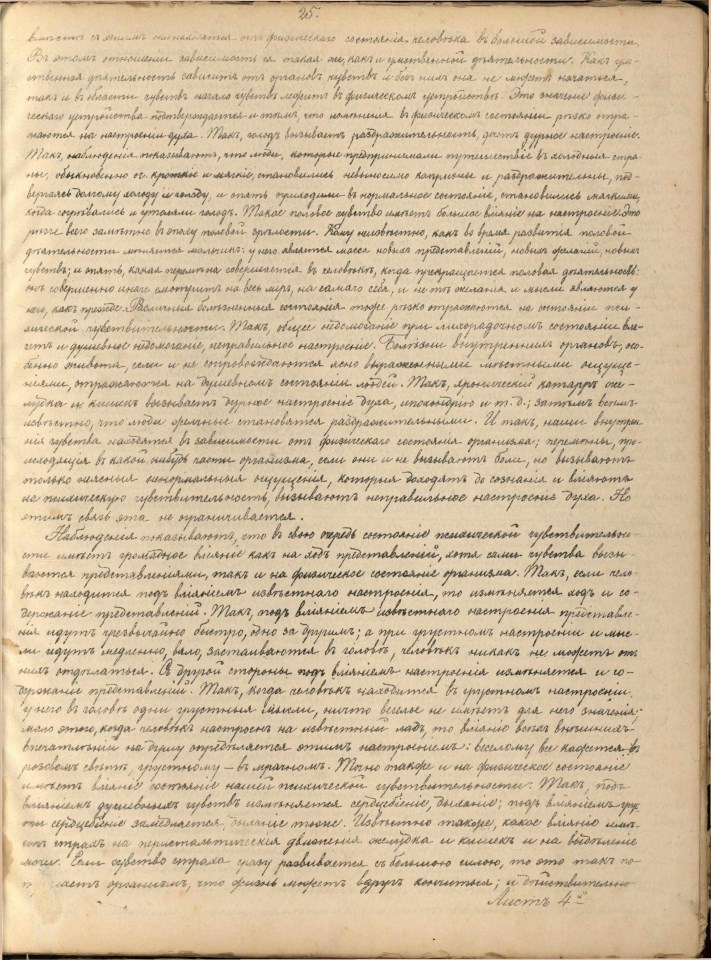 25.
вмѣстѣ съ этимъ они находятся отъ физическаго состоянія человѣка въ большой зависимости.
Въ этомъ отношеніи зависимость ея такая же, какъ и умственной дѣятельности. Какъ ум-
ственная дѣятельность зависитъ отъ органовъ чувствъ и безъ нихъ она не можетъ начаться,
такъ и въ области чувствъ начало чувствъ лежитъ въ физическомъ устройствѣ. Это значеніе физи-
ческаго устройства подтверждается и тѣмъ, что измѣненія въ физическомъ состояніи рѣзко отра-
жаются на настроеніи духа. Такъ, голодъ вызываетъ раздражительность, даетъ дурное настроеніе.
Такъ, наблюденія показываютъ, что люди, которые предпринимали путешествіе въ холодныя стра-
ны, обыкновенно кроткіе и мягкіе, становились невыносимо капризны и раздражительны, под-
вергаясь долгому холоду и голоду, и опять приходили въ нормальное состояніе, становились мягкими,
когда согрѣвались и утоляли голодъ. Также половое чувство имѣетъ большое вліяніе на настроеніе. Это
рѣзче всего замѣтно въ эпоху половой зрѣлости. Кому неизвѣстно, какъ во время развитія половой
дѣятельности мѣняется мальчикъ: у него является масса новыхъ представленій, новыхъ желаній, новыхъ
чувствъ; и опять, какая перемѣна совершается въ человѣкѣ, когда прекращается половая дѣятельность:
онъ совершенно иначе смотритъ на весь міръ, на самаго себя, и не тѣ желанія и мысли являются у
него, какъ прежде. Различныя болѣзненныя состоянія тоже рѣзко отражаются на состояніи пси-
хической чувствительности. Такъ, общее недомоганіе при лихорадочномъ состояніи вле-
четъ и душевное недомоганіе, неправильное настроеніе. Болѣзни внутреннихъ органовъ, осо-
бенно живота, если и не сопровождаются ясно выраженными мѣстными ощуще-
ніями, отражаются на душевномъ состояніи людей. Такъ, хроническій катарръ же-
лудка и кишекъ вызываетъ дурное настроеніе духа, ипохондрію и т. д.; затѣмъ всѣмъ
извѣстно, что люди желчные становятся раздражительными. Итакъ, наши внутрен-
нія чувства находятся въ зависимости отъ физическаго состоянія организма; перемѣны, про-
исходящія въ какой нибудь части организма, если они и не вызываютъ боли, но вызываютъ
только неясныя ненормальныя ощущенія, которыя доходятъ до сознанія и вліяютъ
на психическую чувствительность, вызываютъ неправильное настроеніе духа. Но
этимъ связь эта не ограничивается.
Наблюденія показываютъ, что въ свою очередь состояніе психической чувствительно-
сти имѣетъ громадное вліяніе какъ на ходъ представленій, хотя сами чувства вызы-
ваются представленіями, такъ и на физическое состояніе организма. Такъ, если чело-
вѣкъ находится подъ вліяніемъ извѣстнаго настроенія, то измѣняется ходъ и со-
держаніе представленій. Такъ, подъ вліяніемъ извѣстнаго настроенія представле-
нія идутъ чрезвычайно быстро, одно за другимъ; а при грустномъ настроеніи и мыс-
ли идутъ медленно, вяло, застаиваются въ головѣ, человѣкъ никакъ не можетъ отъ
нихъ отдѣлаться. Съ другой стороны подъ вліяніемъ настроенія измѣняется и со-
держаніе представленій. Такъ, когда человѣкъ находится въ грустномъ настроеніи,
у него въ головѣ одни грустныя мысли, ничто веселое не имѣетъ для него значенія;
мало этого, когда человѣкъ настроенъ на извѣстный ладъ, то вліяніе всѣхъ внѣшнихъ
впечатлѣній на душу опредѣляется этимъ настроеніемъ: веселому все кажется въ
розовомъ свѣтѣ, грустному — въ мрачномъ. Точно также и на физическое состояніе
имѣетъ вліяніе состояніе нашей психической чувствительности. Такъ, подъ
вліяніемъ душевныхъ чувствъ измѣняется сердцебіеніе, дыханіе; подъ вліяніемъ
сердцебіеніе замедляется, дыханіе тоже. Извѣстно также, какое вліяніе имѣ-
етъ страхъ на перистальтическія движенія желудка и кишекъ и на выдѣленіе
мочи. Если чувство страха сразу развивается съ большою силою, то это такъ по-
организмъ, что жизнь можетъ вдругъ кончиться; и дѣйствительно
Листъ 4й